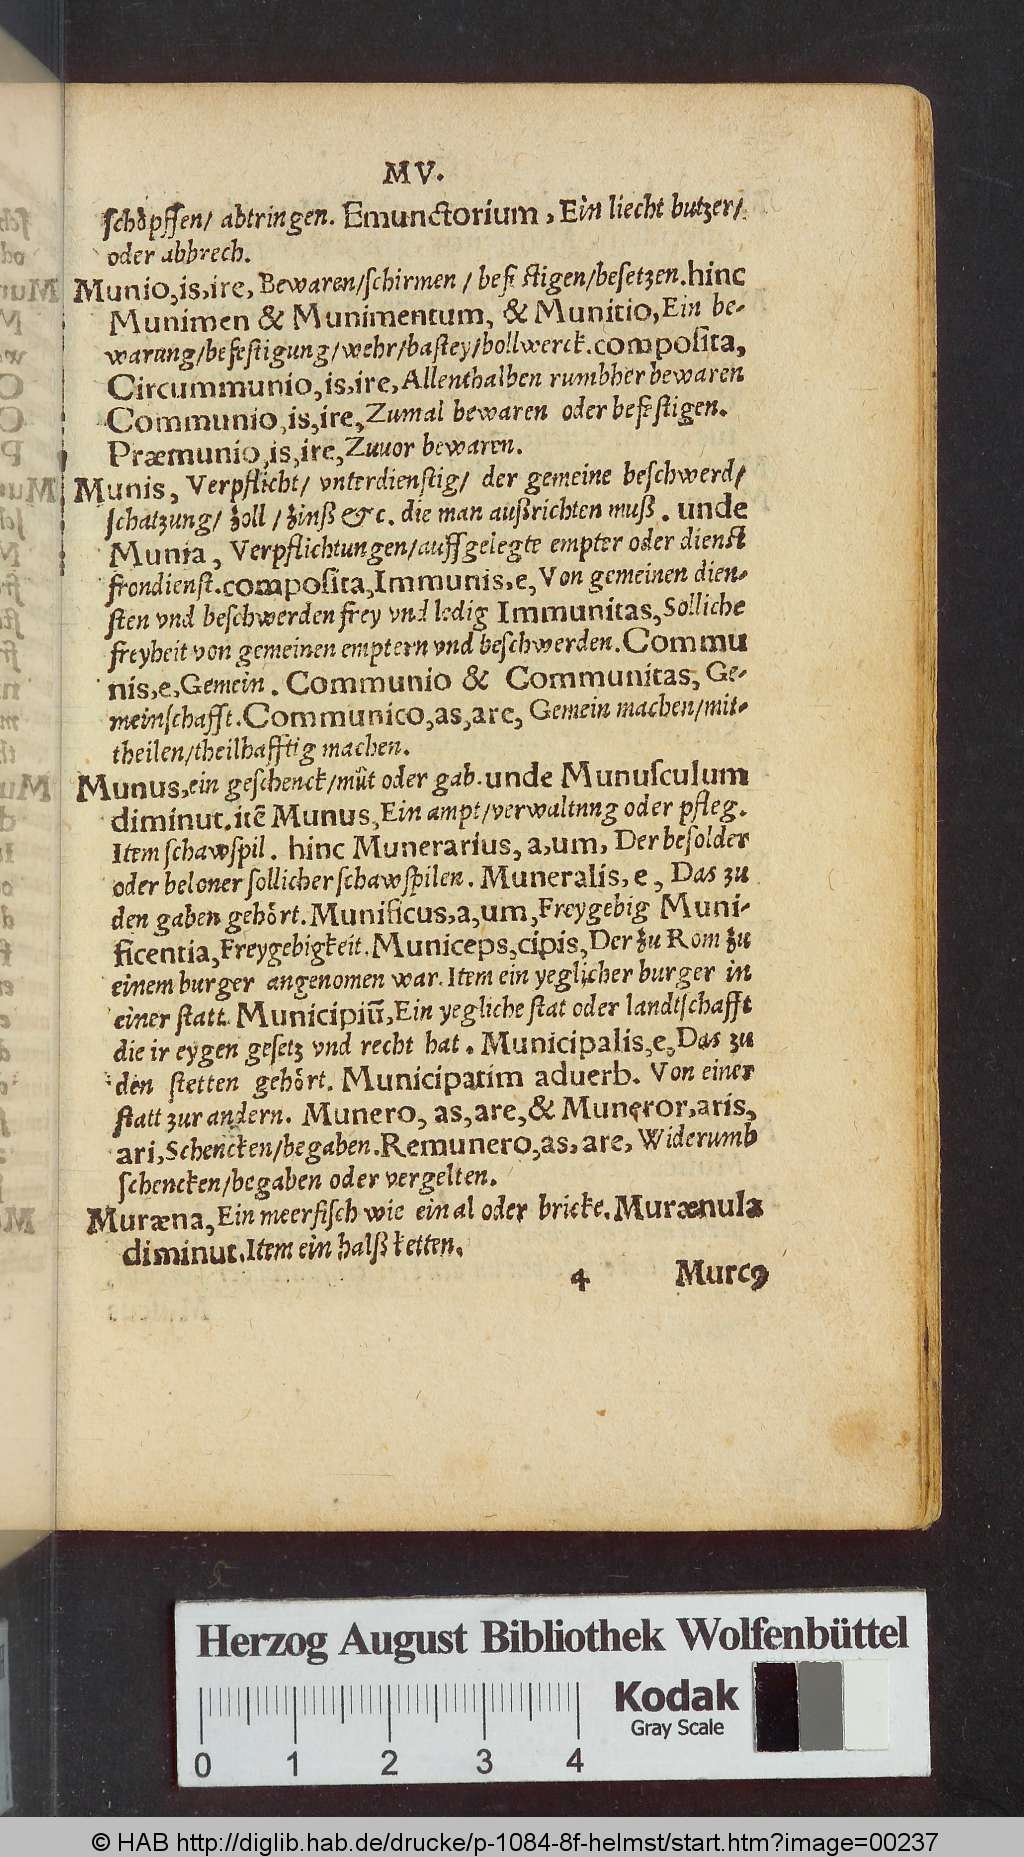 MV.
ſchöpffen/ abtringen. Emunctorium, Ein liecht butzer/
oder abbrech.
Munio, is, ire, Bewaren/ſchirmen / befeſtigen/beſetzen. hinc
Munimen & Munimentum, & Munitio, Ein be-
warung/befeſtigung/wehr/baſtey/bollwerck. compoſita,
Circummunio, is, ire, Allenthalben rumbher bewaren
Communio, is, ire, Zumal bewaren oder befeſtigen.
Præmunio, is, ire, Zuuor bewaren.
Munis, Verpflicht/ vnterdienſtig/ der gemeine beſchwerd/
ſchatzung/ zoll / zinß &c. die man außrichten muß. unde
Munia, Verpflichtungen/auffgelegte empter oder dienſt
frondienſt. compoſita, Immunis, e, Von gemeinen dien-
ſten vnd beſchwerden frey vnd ledig Immunitas, Solliche
freyheit von gemeinen emptern vnd beſchwerden. Commu
nis, e, Gemein. Communio & Communitas, Ge-
meinſchafft. Communico, as, are, Gemein machen/mit-
theilen/theilhafftig machen.
Munus, ein geſchenck/mût oder gab. unde Munuſculum
diminut. itē Munus, Ein ampt/verwaltnng oder pfleg.
Item ſchawſpil. hinc Munerarius, a, um, Der beſolder
oder beloner ſollicher ſchawſpilen. Muneralis, e, Das zu
den gaben gehört. Munificus, a, um, Freygebig Muni-
ficentia, Freygebigkeit. Municeps, cipis, Der zu Rom zu
einem burger angenomen war. Item ein yeglicher burger in
einer ſtatt. Municipiū, Ein yegliche ſtat oder landtſchafft
die ir eygen geſetz vnd recht hat. Municipalis, e, Das zu
den ſtetten gehört. Municipatim aduerb. Von einer
ſtatt zur andern. Munero, as, are, & Muneror, aris,
ari, Schencken/begaben. Remunero, as, are, Widerumb
ſchencken/begaben oder vergelten.
Muræna, Ein meerfiſch wie ein al oder bricke. Murænula
diminut. Item ein halß ketten.
4 Murcꝰ
Herzog August Bibliothek Wolfenbüttel
Kodak
Gray Scale
0 1 2 3 4
© HAB http://diglib.hab.de/drucke/p-1084-8f-helmst/start.htm?image=00237